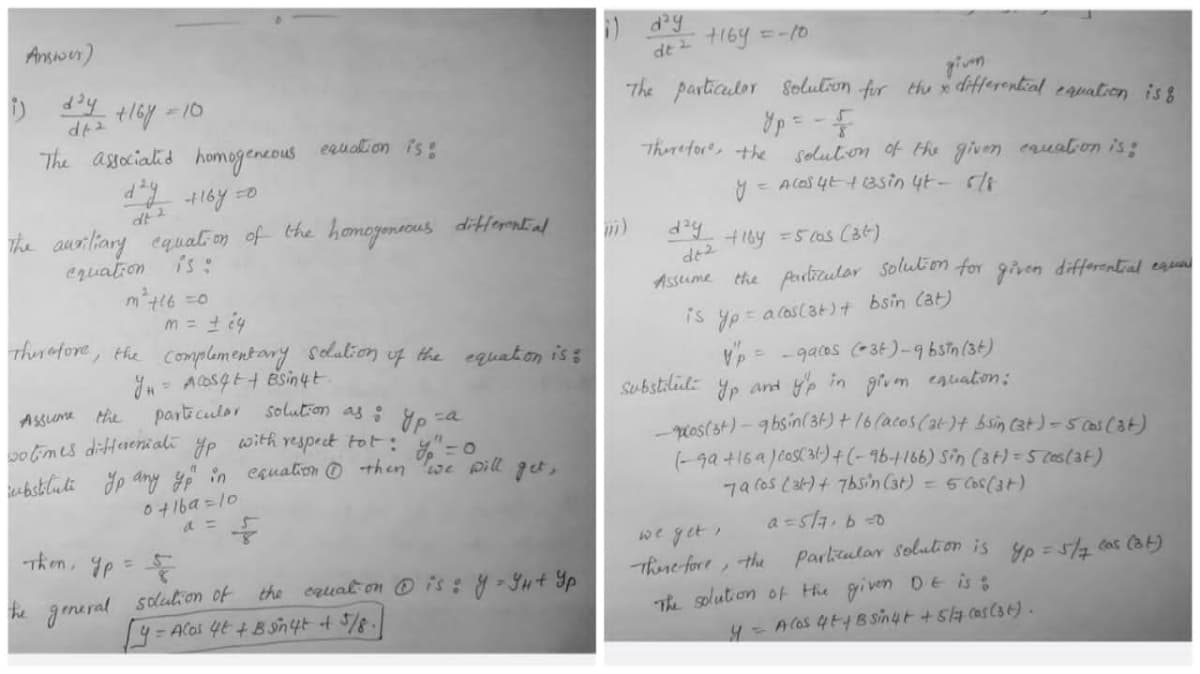 Answer)
i) d²y/dt² +16y = 10
The associated homogeneous equation is:
d²y/dt² +16y =0
The auxiliary equation of the homogeneous differential
equation is:
m²+16 =0
m = ± i4
Therefore, the complementary solution of the equation is:
y_H = Acos4t + Bsin4t.
Assume the particular solution as: y_p =a
differentiate y_p with respect to t: y_p" =0
substitute y_p any y_p" in equation ① then we will get,
0+16a =10
a = 5/8
Then, y_p = 5/8
the general solution of the equation ① is: y = y_H + y_p
y = Acos 4t + B sin4t + 5/8.
i) d²y/dt² +16y = -10
given
The particular solution for the x differential equation is:
y_p = - 5/8
Therefore, the solution of the given equation is:
y = Acos 4t + Bsin 4t - 5/8
iii) d²y/dt² +16y =5 cos (3t)
Assume the particular solution for given differential
is y_p = a cos(3t) + bsin (3t)
y"_p = -9acos (3t) -9bsin(3t)
Substitute y_p and y"_p in given equation:
-9acos(3t) - 9bsin(3t) + 16(acos(3t)+ bsin(3t) = 5 cos(3t)
(-9a +16a)cos(3t) + (-9b+16b) sin (3t) = 5 cos(3t)
7a cos (3t) + 7bsin(3t) = 5 cos(3t)
we get, a =5/7, b =0
Therefore, the particular solution is y_p = 5/7 cos (3t)
The solution of the given DE is:
y = Acos 4t + B sin4t + 5/7 cos(3t).